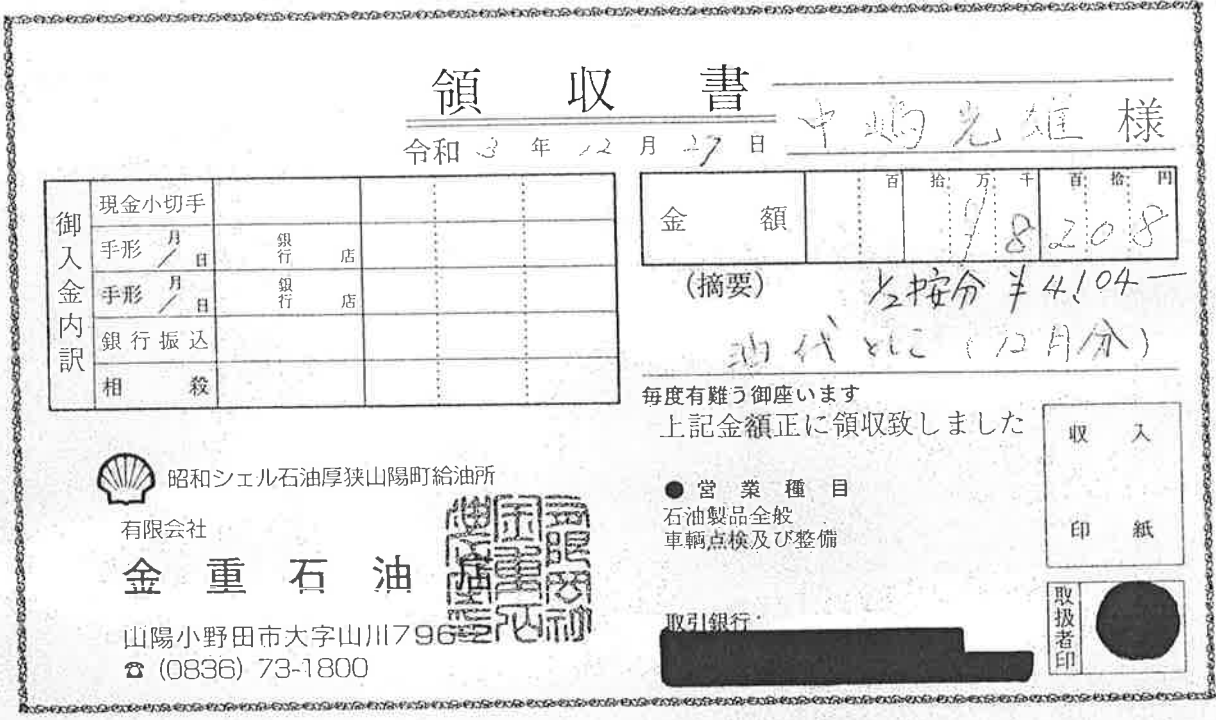 領収書
中嶋光雄 様
令和 3 年 12 月 27 日
御入金内訳
現金小切手
手形 月/日 銀行 店
手形 月/日 銀行 店
銀行振込
相殺
金額
百 拾 万 千 百 拾 円
¥ 8 2 0 8
(摘要)
1/2按分 ¥4,104ー
油代として (12月分)
毎度有難う御座います
上記金額正に領収致しました
収入印紙
昭和シェル石油厚狭山陽町給油所
有限会社
金重石油店
山陽小野田市大字山川796
☎ (0836) 73-1800
● 営業種目
石油製品全般
車輌点検及び整備
取引銀行
取扱者印